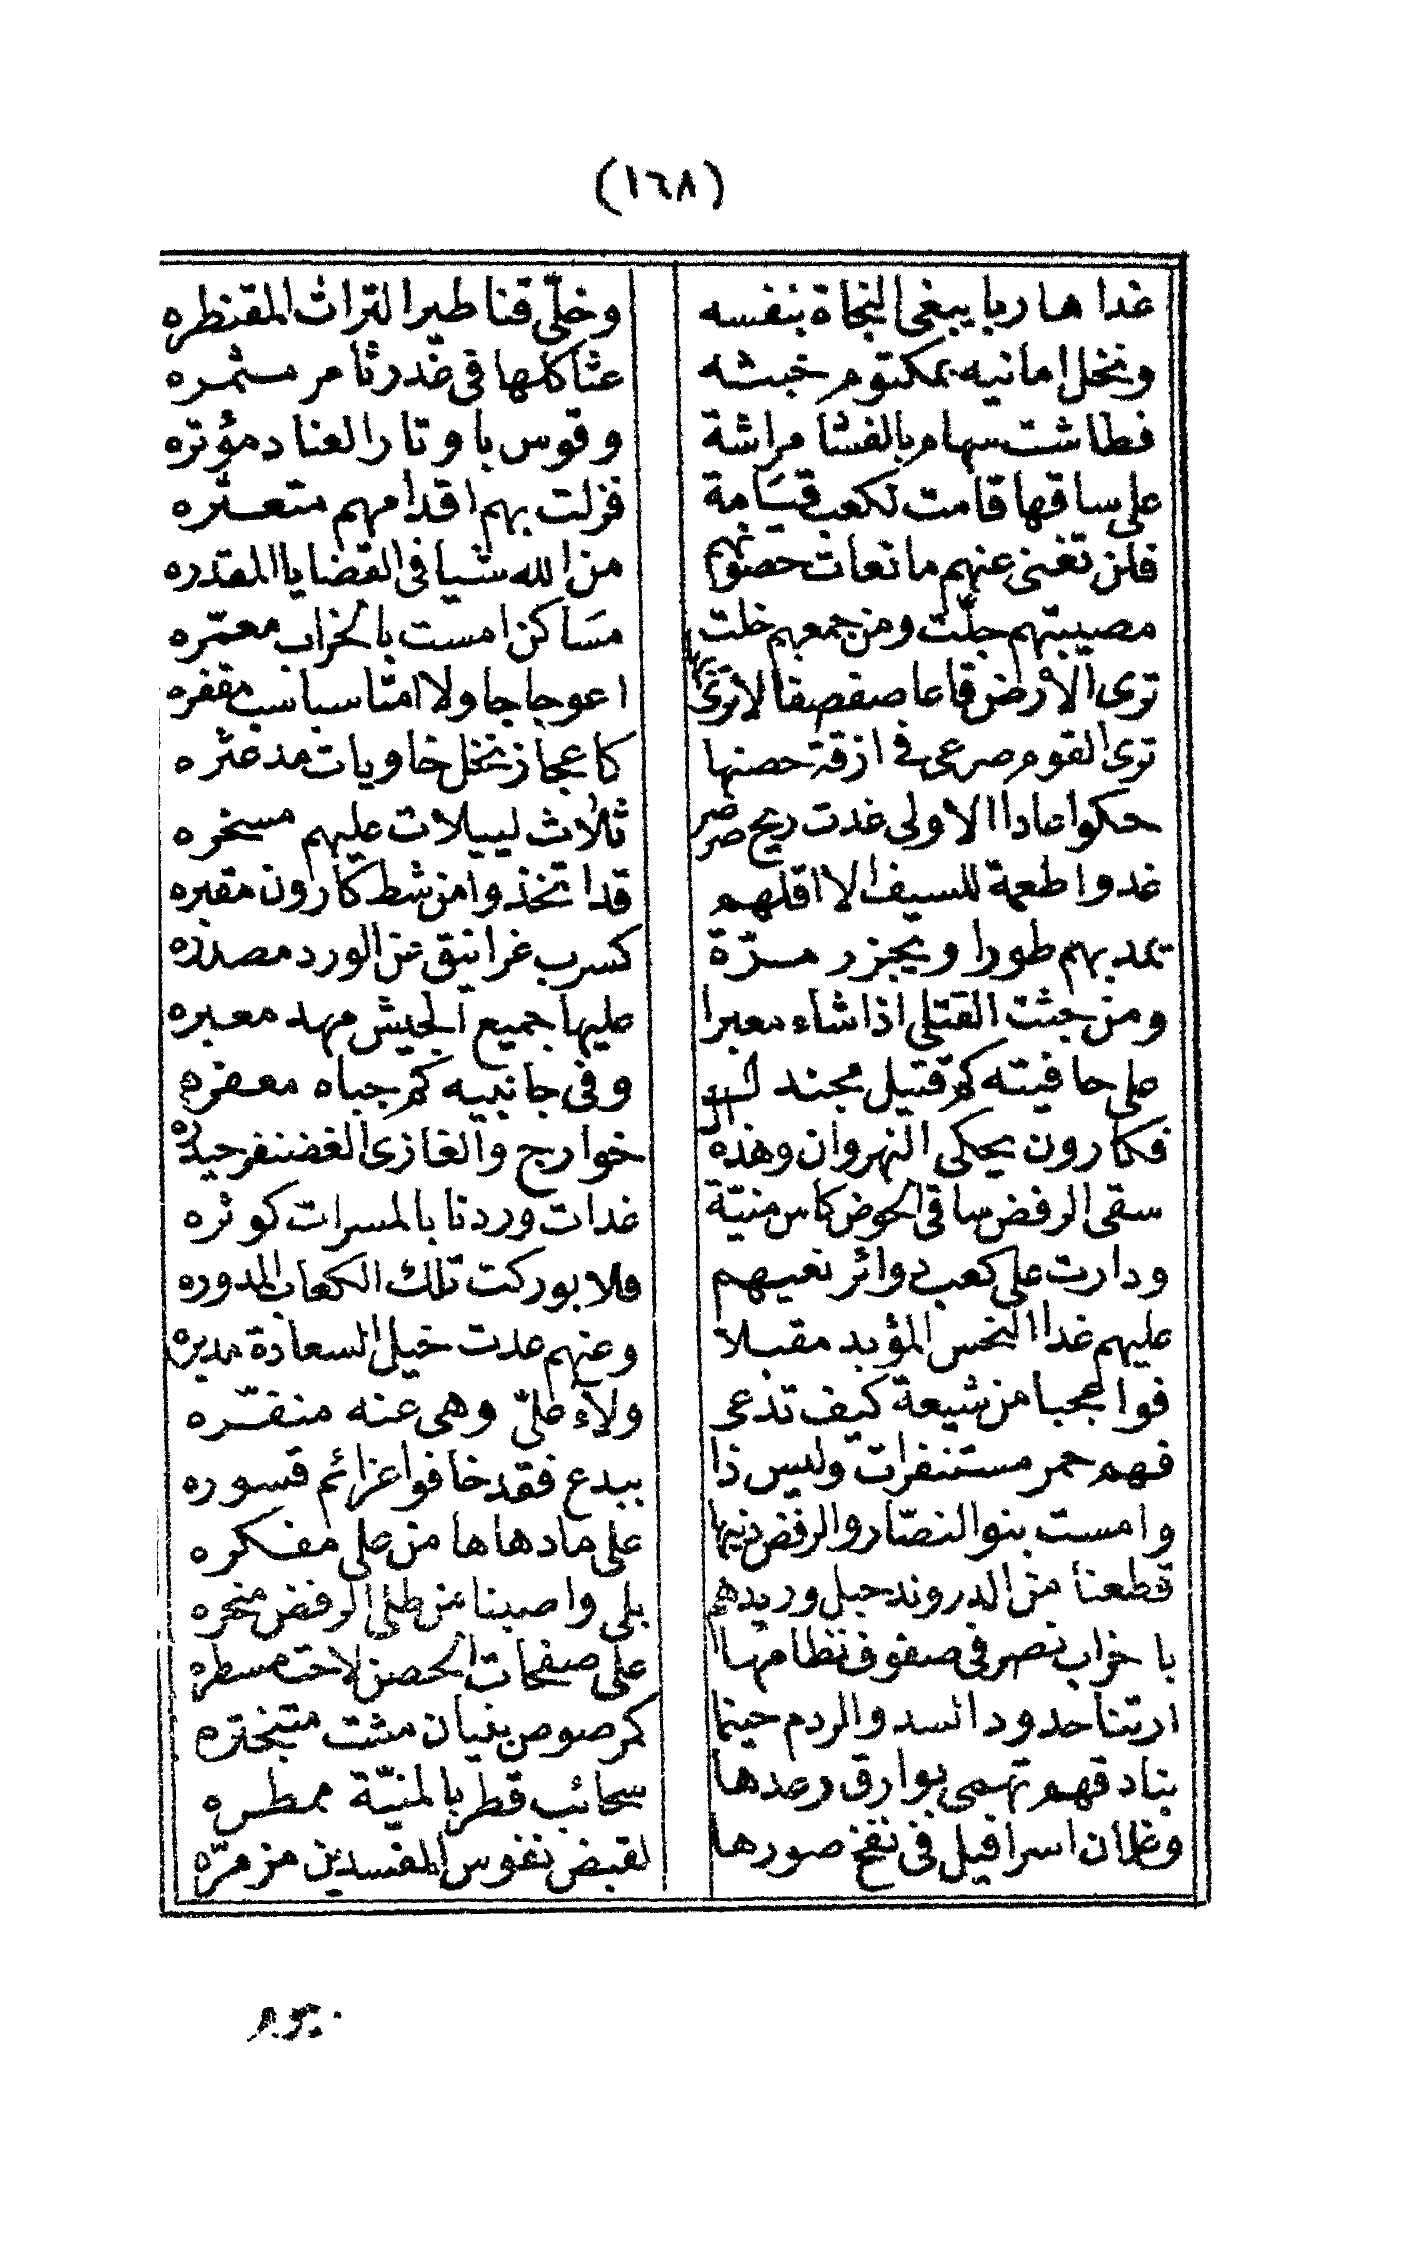 (١٦٨)
غدا هاربا يبغى النجاة بنفسه وخلّى قناطير التراث المقنطره
ونخل امانيه بمكتوم خبثه عثاكلها فى غدرثا مر مستثمره
فطاشت سهام بالفشا مراشة وقوس با وتار العناد مؤتره
على ساقها قامت لكعب قيامة فزلت بهم اقدامهم متعثره
فلن تغنى عنهم مانعات حصونهم من الله شيا فى القضايا المقدره
مصيبتهم جلّت ومن جمعهم خلت مساكن امست بالخراب معمّره
ترى الارض قاعا صفصفا لا ترى بها اعوجاجا ولا امتا سباسب مقفره
ترى القوم صرعى فى ازقة حصنها كاعجاز نخل خاويات مدعثره
حكوا عادا الاولى غدت ريح صرصر ثلاث ليبيلات عليهم مسخره
غدوا طعمة للسيف الا اقلهم قد اتخذوا من شط كارون مقبره
يمد بهم طورا ويجزر مرّة كسرب غرانيق عن الورد مصدره
ومن جثث القتلى اذا شاء معبرا عليها جميع الجيش مهد معبره
على حافيته كم قتيل مجند وفى جانبيه كم جباه معفره
فكارون يحكى النهروان وهذه خوارج والغازى الغضنفر حيدره
سقى الرفض ساقى الحوض كاس منيّة غدات وردنا بالمسرات كوثره
ودارت على كعب دوائر نعيهم فلا بوركت تلك الكعاب المدوره
عليهم غدا النحس المؤبد مقبلا وعنهم عدت خيل السعادة مدبره
فواعجبا من شيعة كيف تدعى ولاء علىّ وهى عنه منفّره
فهم حمر مستنفرات وليس ذا ببدع فقد خافوا عزائم قسوره
وامست بنو النصّار والرفض دينها على مادهاها من على مفكره
قطعنا من الدروند حبل وريدهم بلى واصبنا من طلى الرفض منحره
باخزاب نصر فى صفوف نظامها على صفحات الحصن لاحت مسطره
ارتنا حدود السد والردم حينما كمرصوص بنيان مشت متبختره
بنادقهم تهمى بوارق رعدها سحائب قطر بالمنيّة ممطره
وغلمان اسرافيل فى نفخ صورها لقبض نفوس المفسدين مزمرّه